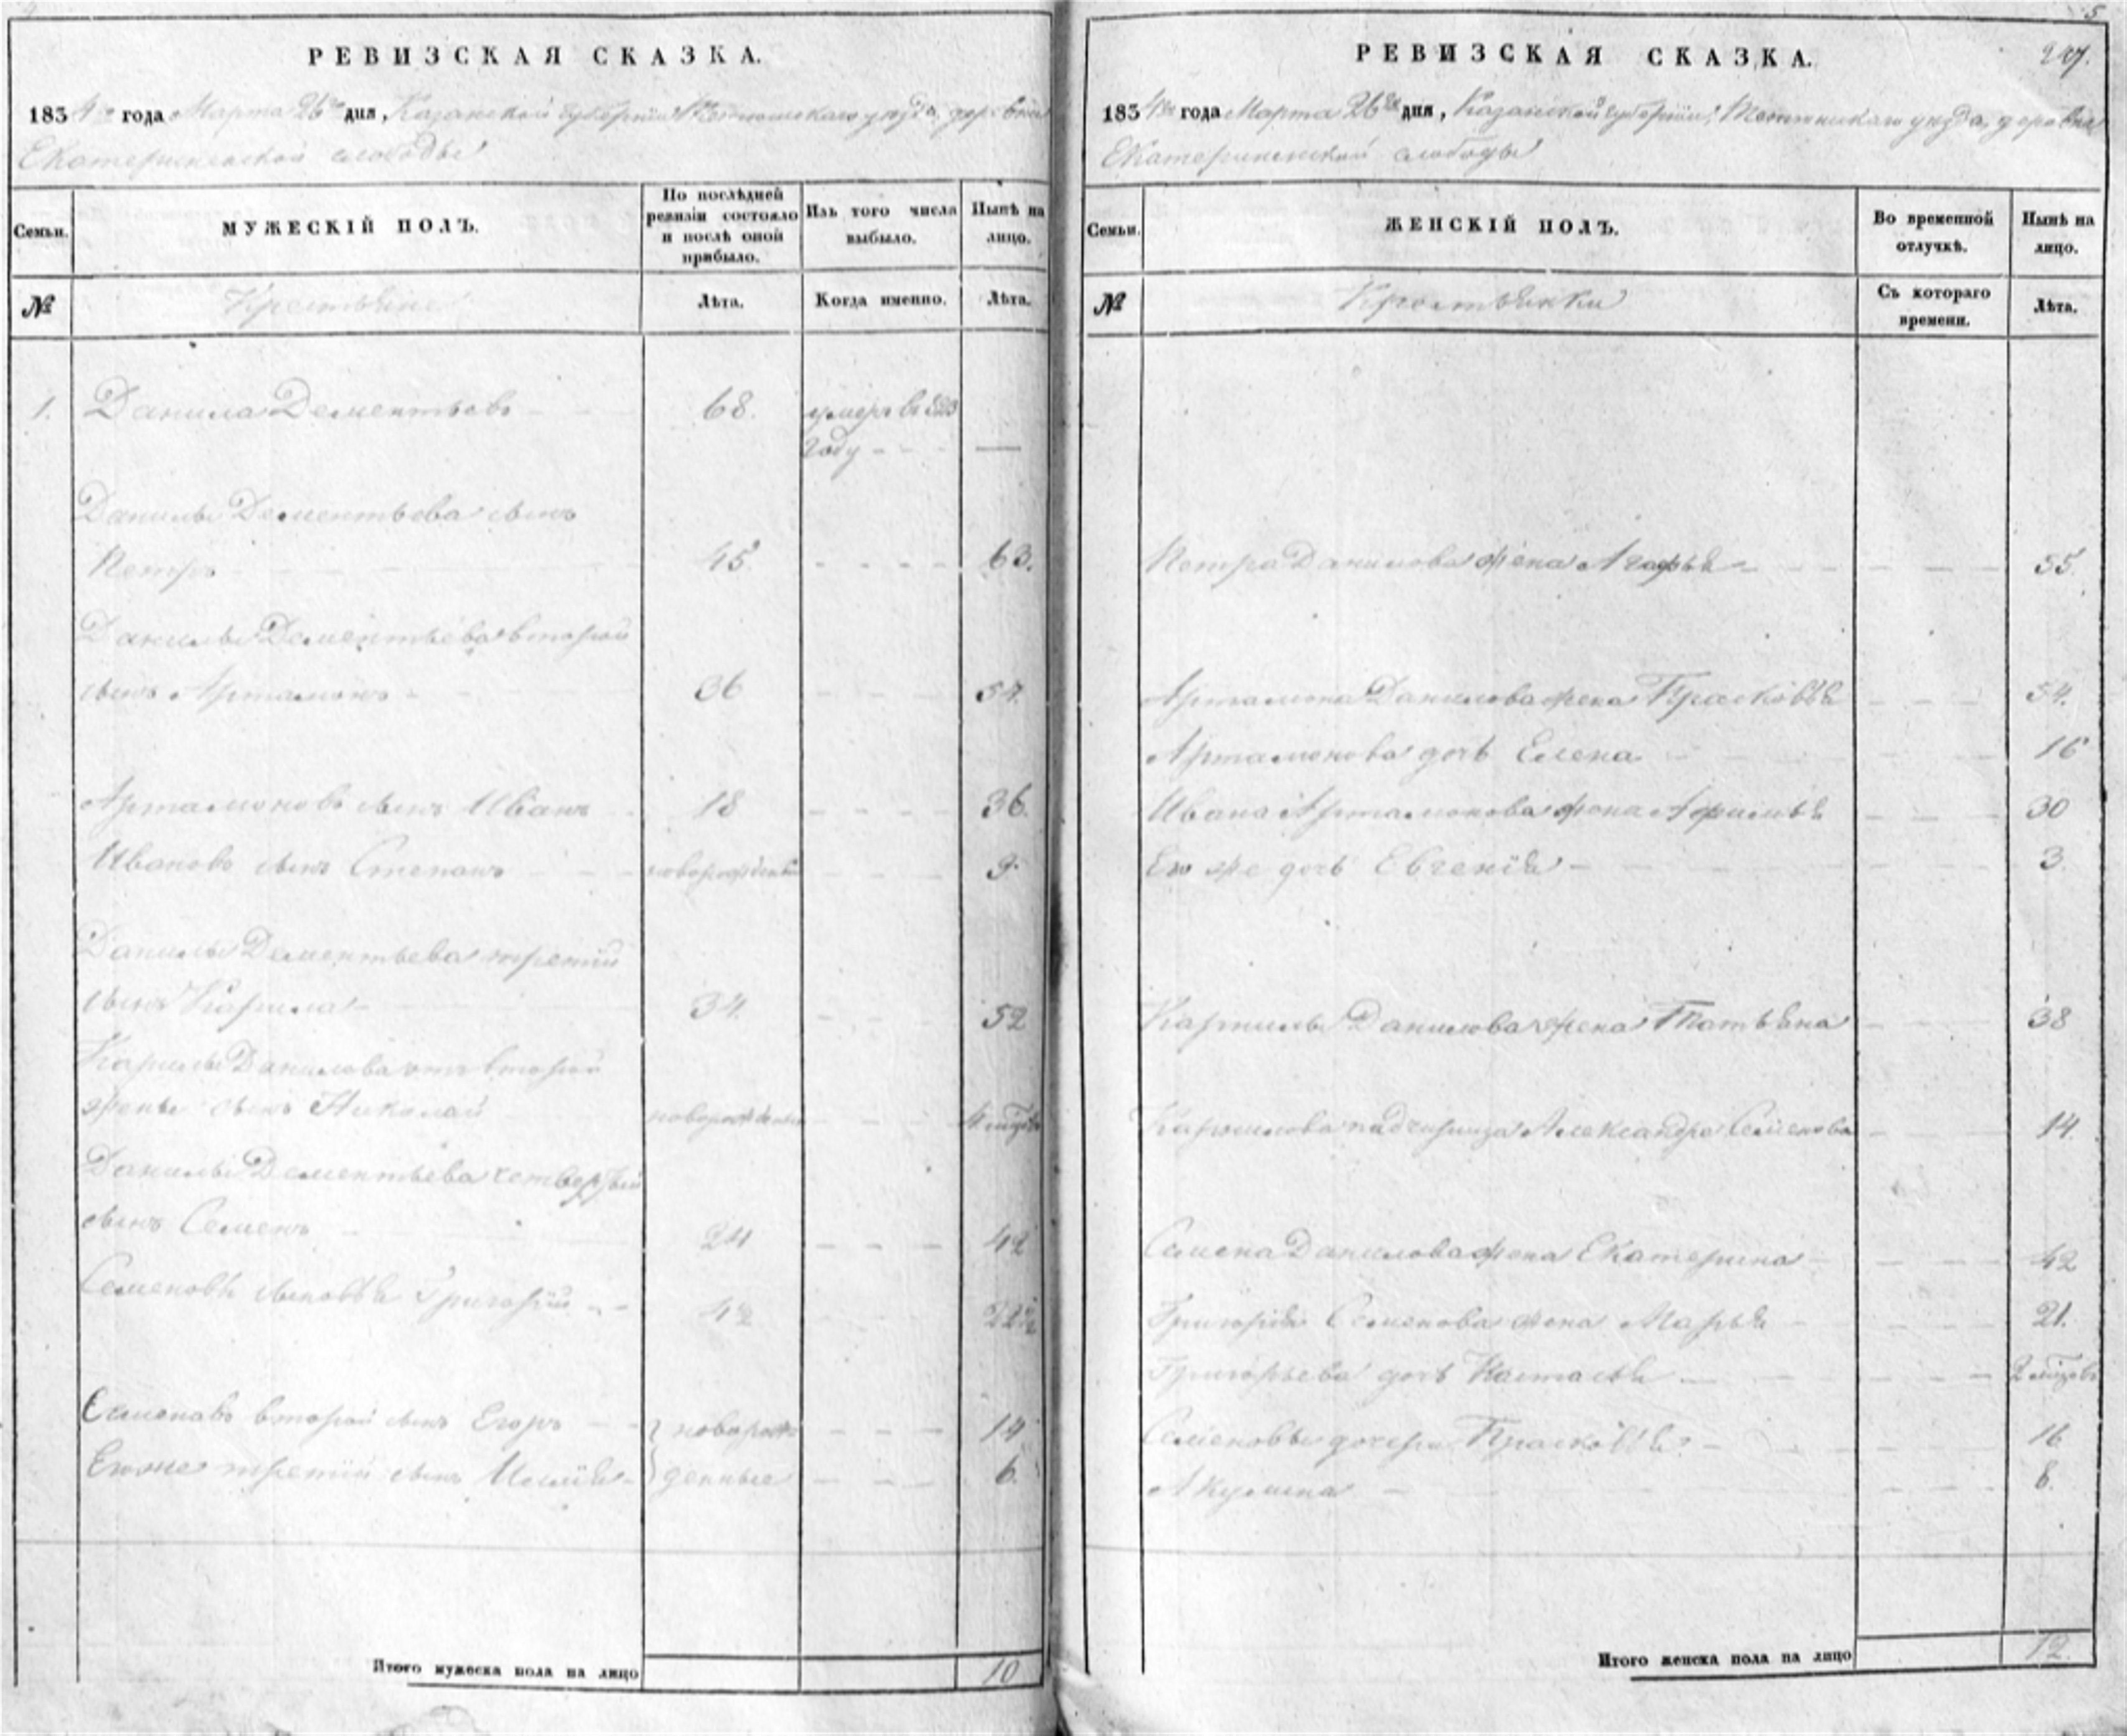 РЕВИЗСКАЯ СКАЗКА.
1834го года Марта 26го дня, Казанской губернии Тетюшскаго уезда, деревни
Екатерининской слободы
Семьи.
МУЖЕСКІЙ ПОЛЪ.
По послѣдней ревизіи состояло и послѣ оной прибыло.
Изъ того числа выбыло.
Нынѣ на лицо.
№
Крестьяне
Лѣта.
Когда именно.
Лѣта.
1. Данила Дементьевъ 68. умеръ въ
году —
Данилы Дементьева сынъ
Петръ 45. 63.
Данилы Дементьева второй
сынъ Артамонъ 36 54.
Артамоновъ сынъ Иванъ 18 36.
Ивановъ сынъ Степанъ новорожденный 9.
Данилы Дементьева третій
сынъ 34. 52
Данилова отъ второй
жены сынъ Николай новорожденный
Данилы Дементьева четвертый
сынъ Семенъ 24 42
Семеновы сыновья Григорій
Семеновъ второй сынъ Егоръ новорож 14
Его же третій сынъ Илья денные 6.
Итого мужеска пола на лицо 10
5
РЕВИЗСКАЯ СКАЗКА.
1834го года Марта 26го дня, Казанской губерніи, Тетюшскаго уезда, деревни
Екатерининской слободы
Семьи.
ЖЕНСКІЙ ПОЛЪ.
Во временной отлучкѣ.
Нынѣ на лицо.
№
Крестьянки
Съ котораго времени.
Лѣта.
Петра Данилова жена Агафья 55.
Артамона Данилова жена Прасковья 54.
Артамонова дочь Елена 16
Ивана Артамонова жена Афимья 30
Его же дочь Евгенія 3.
Данилова жена Татьяна 38
падчерица Александра Семенова 14.
Семена Данилова жена Екатерина 42
Григорія Семенова жена Марья 21.
Григорьева дочь Настасья
Семеновы дочери Прасковья 16
Акулина 8.
Итого женска пола на лицо 12.